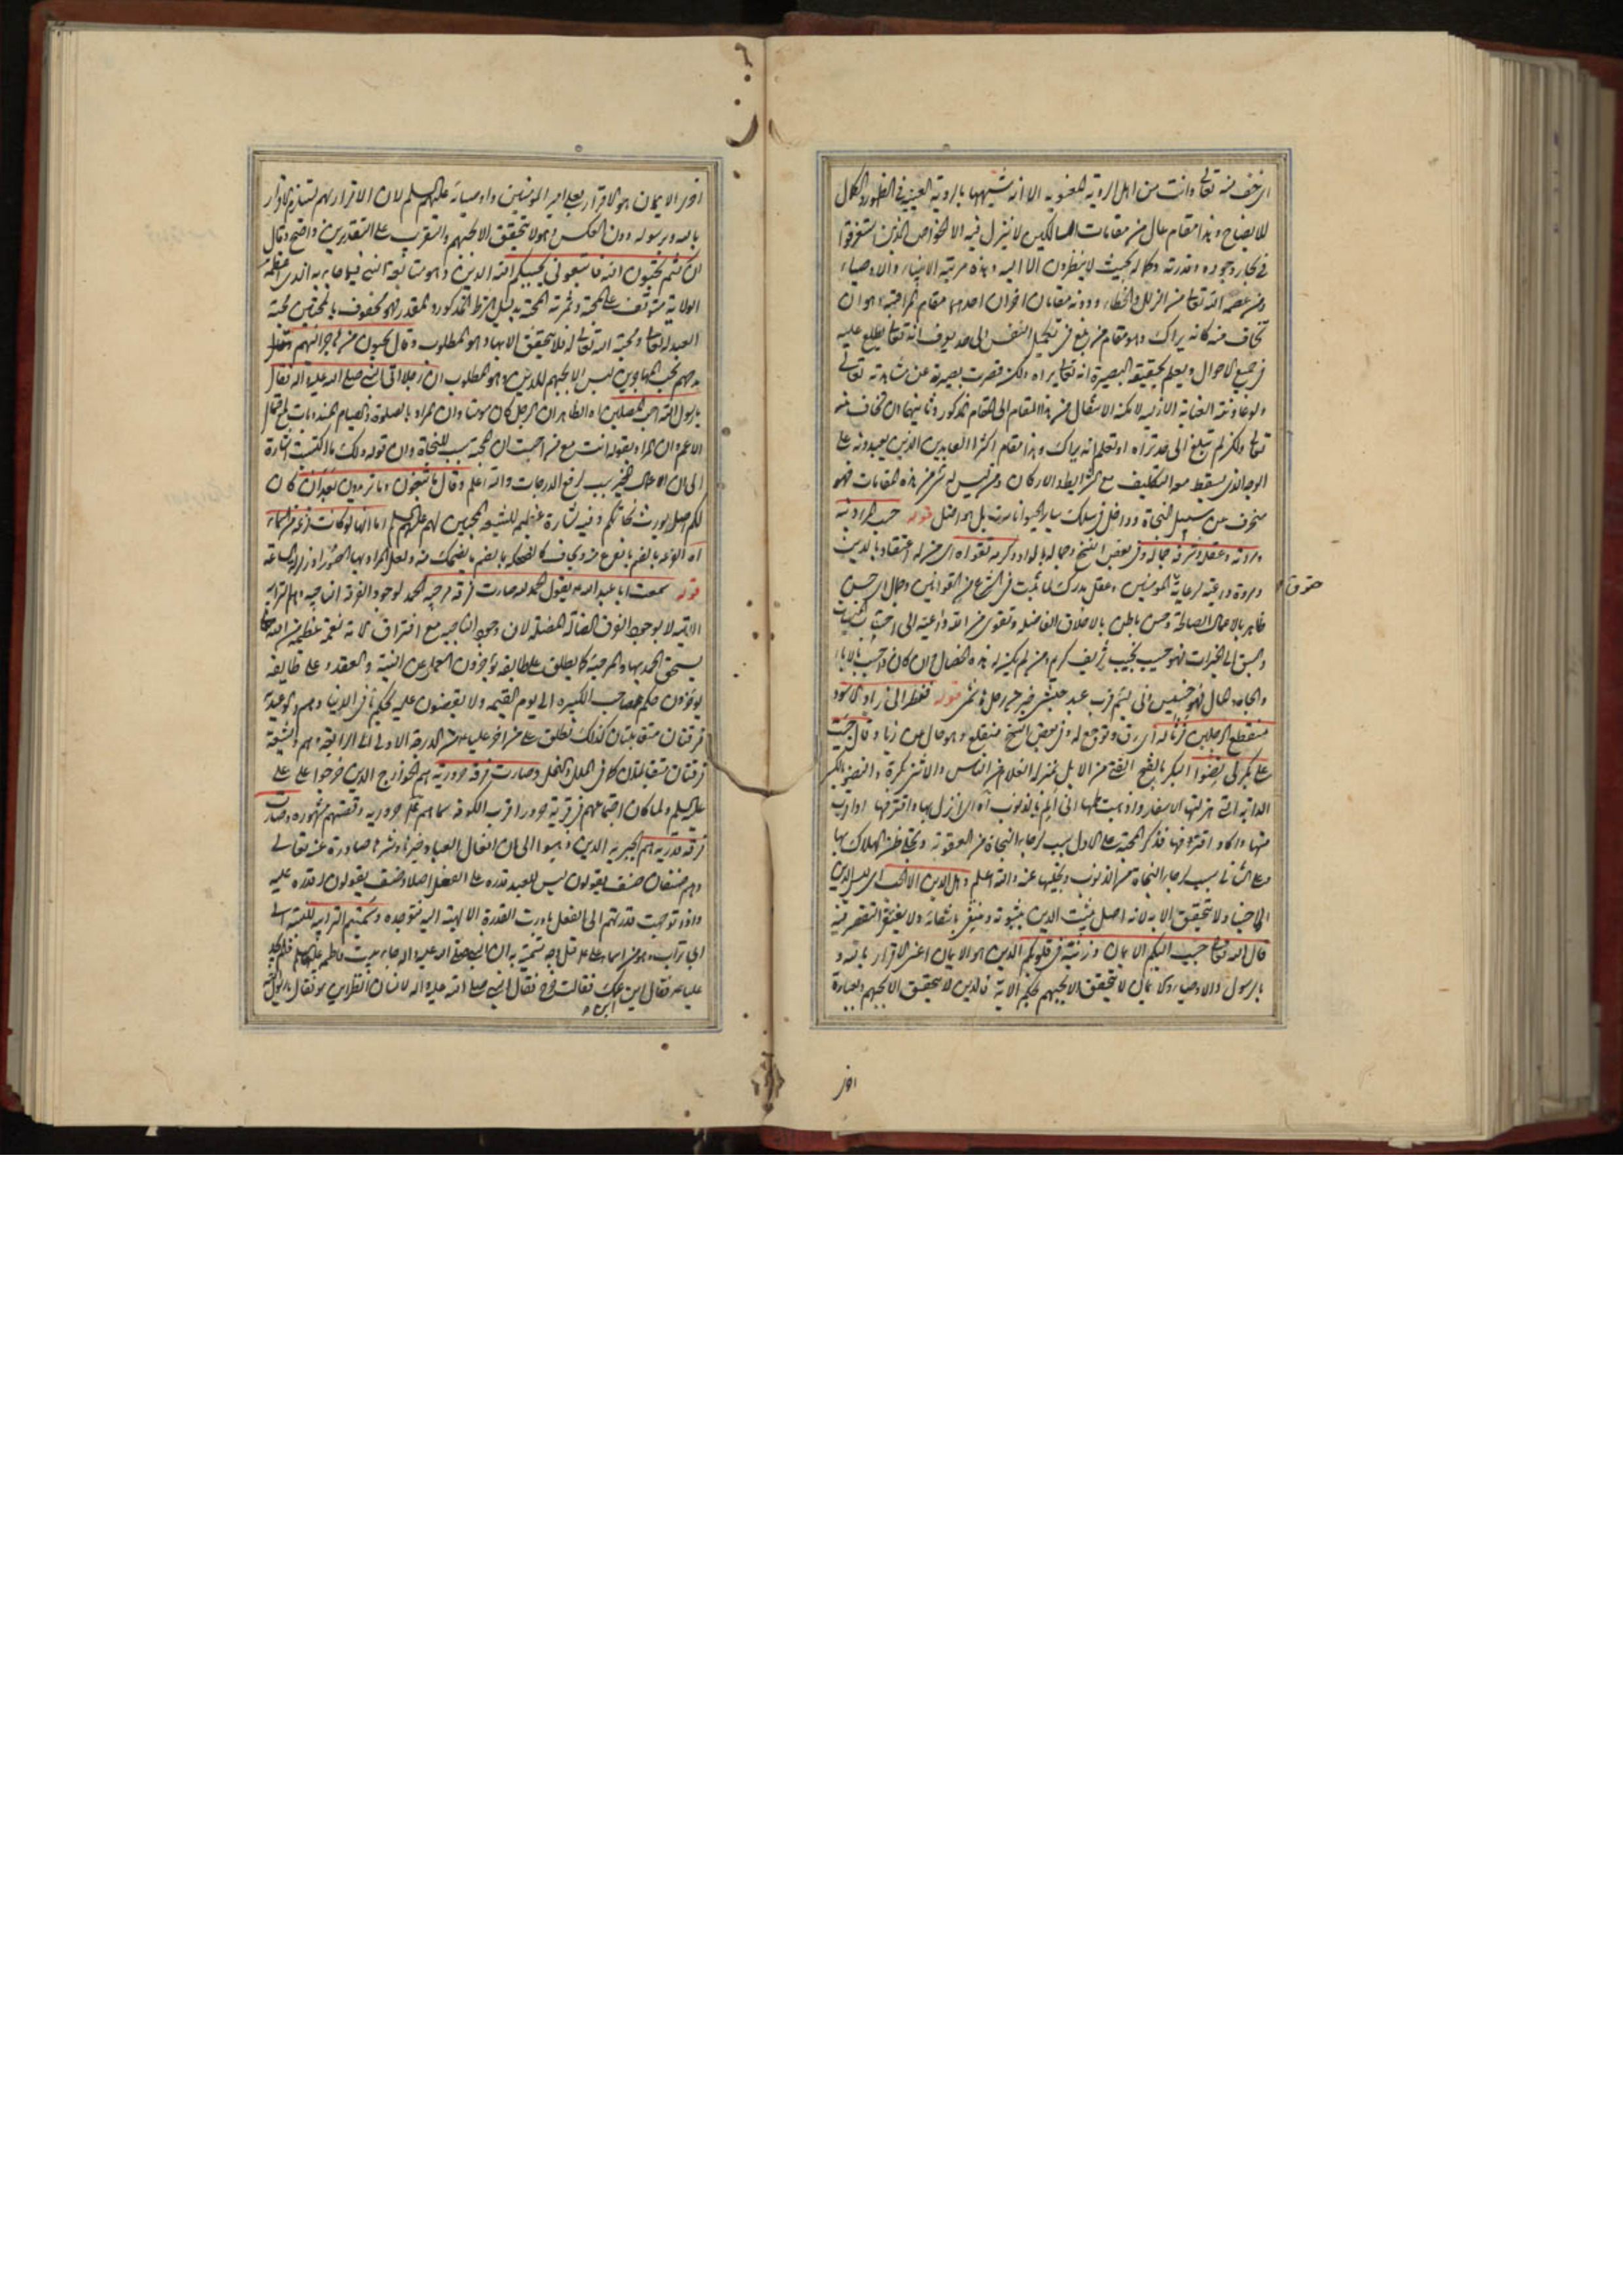 اى خف منه تعالى وانت من اهل الروية المعنوية الا انه شبهها بالروية العينية فى الظهور والكمال
للايضاح وهذا مقام عال من مقامات السالكين لا ينزل فيه الا الخواص الذين استغرقوا
فى بحار وجوده وقدرته وكماله بحيث لا ينظرون الا اليه وهذه مرتبة الانبياء والاوصياء
ومن عصمه الله تعالى من الزلل والخطاء ودونه مقامان اخران احدهما مقام المراقبة وهو ان
تخاف منه كانه يراك وهو مقام من بلغ فى تكميل النفس الى حد يعرف انه تعالى يطلع عليه
فى جميع الاحوال ويعلم بحقيقة البصيرة انه تعالى يراه ولكن قصرت بصيرته عن مشاهدته تعالى
ولو عاونته العناية الازلية لامكنه الانتقال من هذا المقام الى المقام المذكور وثانيهما ان تخاف منه
تعالى ولكن لم تبلغ الى حد تراه او تعلم انه يراك وهذا مقام اكثر العابدين الذين يعبدونه على
الوجه الذى يسقط معه التكليف مع الشرايط والاركان ومن ليس له شئ من هذه المقامات فهو
منحرف عن سبيل النجاة وداخل فى سلك ساير الحيوانات بل هو اضل قوله حسب المرء دينه
ومروته وعقله وشرفه جماله وفى بعض النسخ وجماله بالواو وكرمه تقواه
ومروة داعية لرعاية المؤمنين وعقل يدرك ما ثبت فى الشرع من القوانين وجمال اى حسن
حقوق
ظاهر بالاعمال الصالحة وحسن باطن بالاخلاق الفاضلة وتقوى من الله داعية الى
والسبق الى الخيرات فهو حسيب نجيب شريف كريم ومن لم يكن له هذه الخصال وان كان ذا حسب بالاباء
والجاه والمال فهو خسيس دنى لئيم قوله فنظر الى زياد الاسود
منقطع الرجلين فرثا له اى رق وتوجع له وفى بعض النسخ منقلع وهو حال عن زياد وقال جئت
على بكر لى نضوا البكر بالفتح الفتى من الابل بمنزلة الغلام من الناس والانثى بكرة والنضو بالكسر
الدابة التى هزلتها الاسفار واذهبت لحمها انى الم بالذنوب اه اى انزل بها واقترفها او اقرب
منها واكاد اقترفها فذكر المحبة على الاول سبب لرجاء النجاة من العقوبة وتجلى ظن الهلاك بها
وعلى الثانى سبب لرجاء النجاة من الذنوب وتجليها عنه والله اعلم وهل الدين الا الحب اى ليس الدين
الا حبنا ولا يتحقق الا به لانه اصل يثبت الدين بثبوته وينتفى بانتفائه
قال الله تعالى حبب اليكم الايمان وزينه فى قلوبكم الدين هو الايمان اعنى الاقرار بالله و
بالرسول والاوصياء والايمان لا يتحقق الا بحبهم بحكم الاية فالدين لا يتحقق الا بحبهم وبعبارة
اخر
اخرى الايمان هو الاقرار بعلى امير المؤمنين واوصيائه عليهم السلم لان الاقرار بهم يستلزم الاقرار
بالله وبرسوله دون العكس وهو لا يتحقق الا بحبهم والتقريب على التقديرين واضح وقال
ان كنتم تحبون الله فاتبعونى يحببكم الله الدين هو متابعة النبى فيما جاء به الذى اعظمه
الولاية متوقف على المحبة وثمرته المحبة بدليل الشرط المذكور والمقدر فهو محفوف بالمحبتين محبة
العبد له تعالى ومحبة الله تعالى له فلا يتحقق الا بها وهو المطلوب وقال يحبون من هاجر اليهم
مدحهم بحب المهاجرين ليس الا لحبهم للدين وهو المطلوب ان رجلا اتى النبى صلى الله عليه واله فقال
يا رسول الله احب المصلين اه الظاهر ان الرجل كان مؤمنا وان المراد بالصلوة والصيام المندوبات مع احتمال
الاعم وان المراد بقوله انت مع من احببت ان المحبة سبب للنجاة وان قوله ولك ما اكتسبت اشارة
الى ان الاعمال الخير سبب لرفع الدرجات والله اعلم وقال ما تبغون وما تريدون بعد ان كان
لكم اصل يورث نجاتكم وفيه بشارة عظيمة للشيعة المحبين لهم عليهم السلم اما انها لو كانت فزعة من السماء
اه الفزعة بالضم ما يفزع منه ويخاف كالضحكة بالضم ما يضحك منه ولعل المراد بها الصور او زلزلة الساعة
قوله سمعت ابا عبد الله ع يقول الحمد لله صارت فرقة مرجئة الحمد لوجود الفرقة الناجية وهم الترابية
الاتية لا لوجود الفرق الضالة المضلة لان وجود الناجية مع افتراق الامة نعمة عظيمة من الله تعالى
يستحق الحمد بها والمرجئة كما يطلق على طايفة يؤخرون العمل عن النية والعقد وعلى طايفة
يؤخرون حكم صاحب الكبيرة الى يوم القيمة ولا يقضون عليه بحكم ما فى الدنيا وهم والوعيدية
فرقتان متقابلتان كذلك يطلق على من اخر عليا ع من الدرجة الاولى الى الرابعة وهم والشيعة
فرقتان متقابلتان كما فى الملل والنحل وصارت فرقة حرورية هم الخوارج الذين خرجوا على على
عليه السلم ولما كان اجتماعهم فى قرية حرورا قرب الكوفة سماهم ع حرورية وقصتهم مشهورة وصارت
فرقة قدرية هم الجبرية الذين ذهبوا الى ان افعال العباد خيرها وشرها صادرة عنه تعالى
وهم صنفان صنف يقولون ليس للعبد قدرة على الفعل اصلا وصنف يقولون له قدرة عليه
واذا توجهت قدرتهم الى الفعل بادرت القدرة الالهية اليه فتوجده وسميتم الترابية للنسبة الى
ابى تراب وهو من اسماء على ع قيل وجه تسميته به ان النبى صلى الله عليه واله جاء بيت فاطمة عليها السلم فلم يجد
عليا ع فقال اين ابن عمك فقالت خرج فقال النبى صلى الله عليه واله لانسان انظر اين هو فقال يا رسول الله